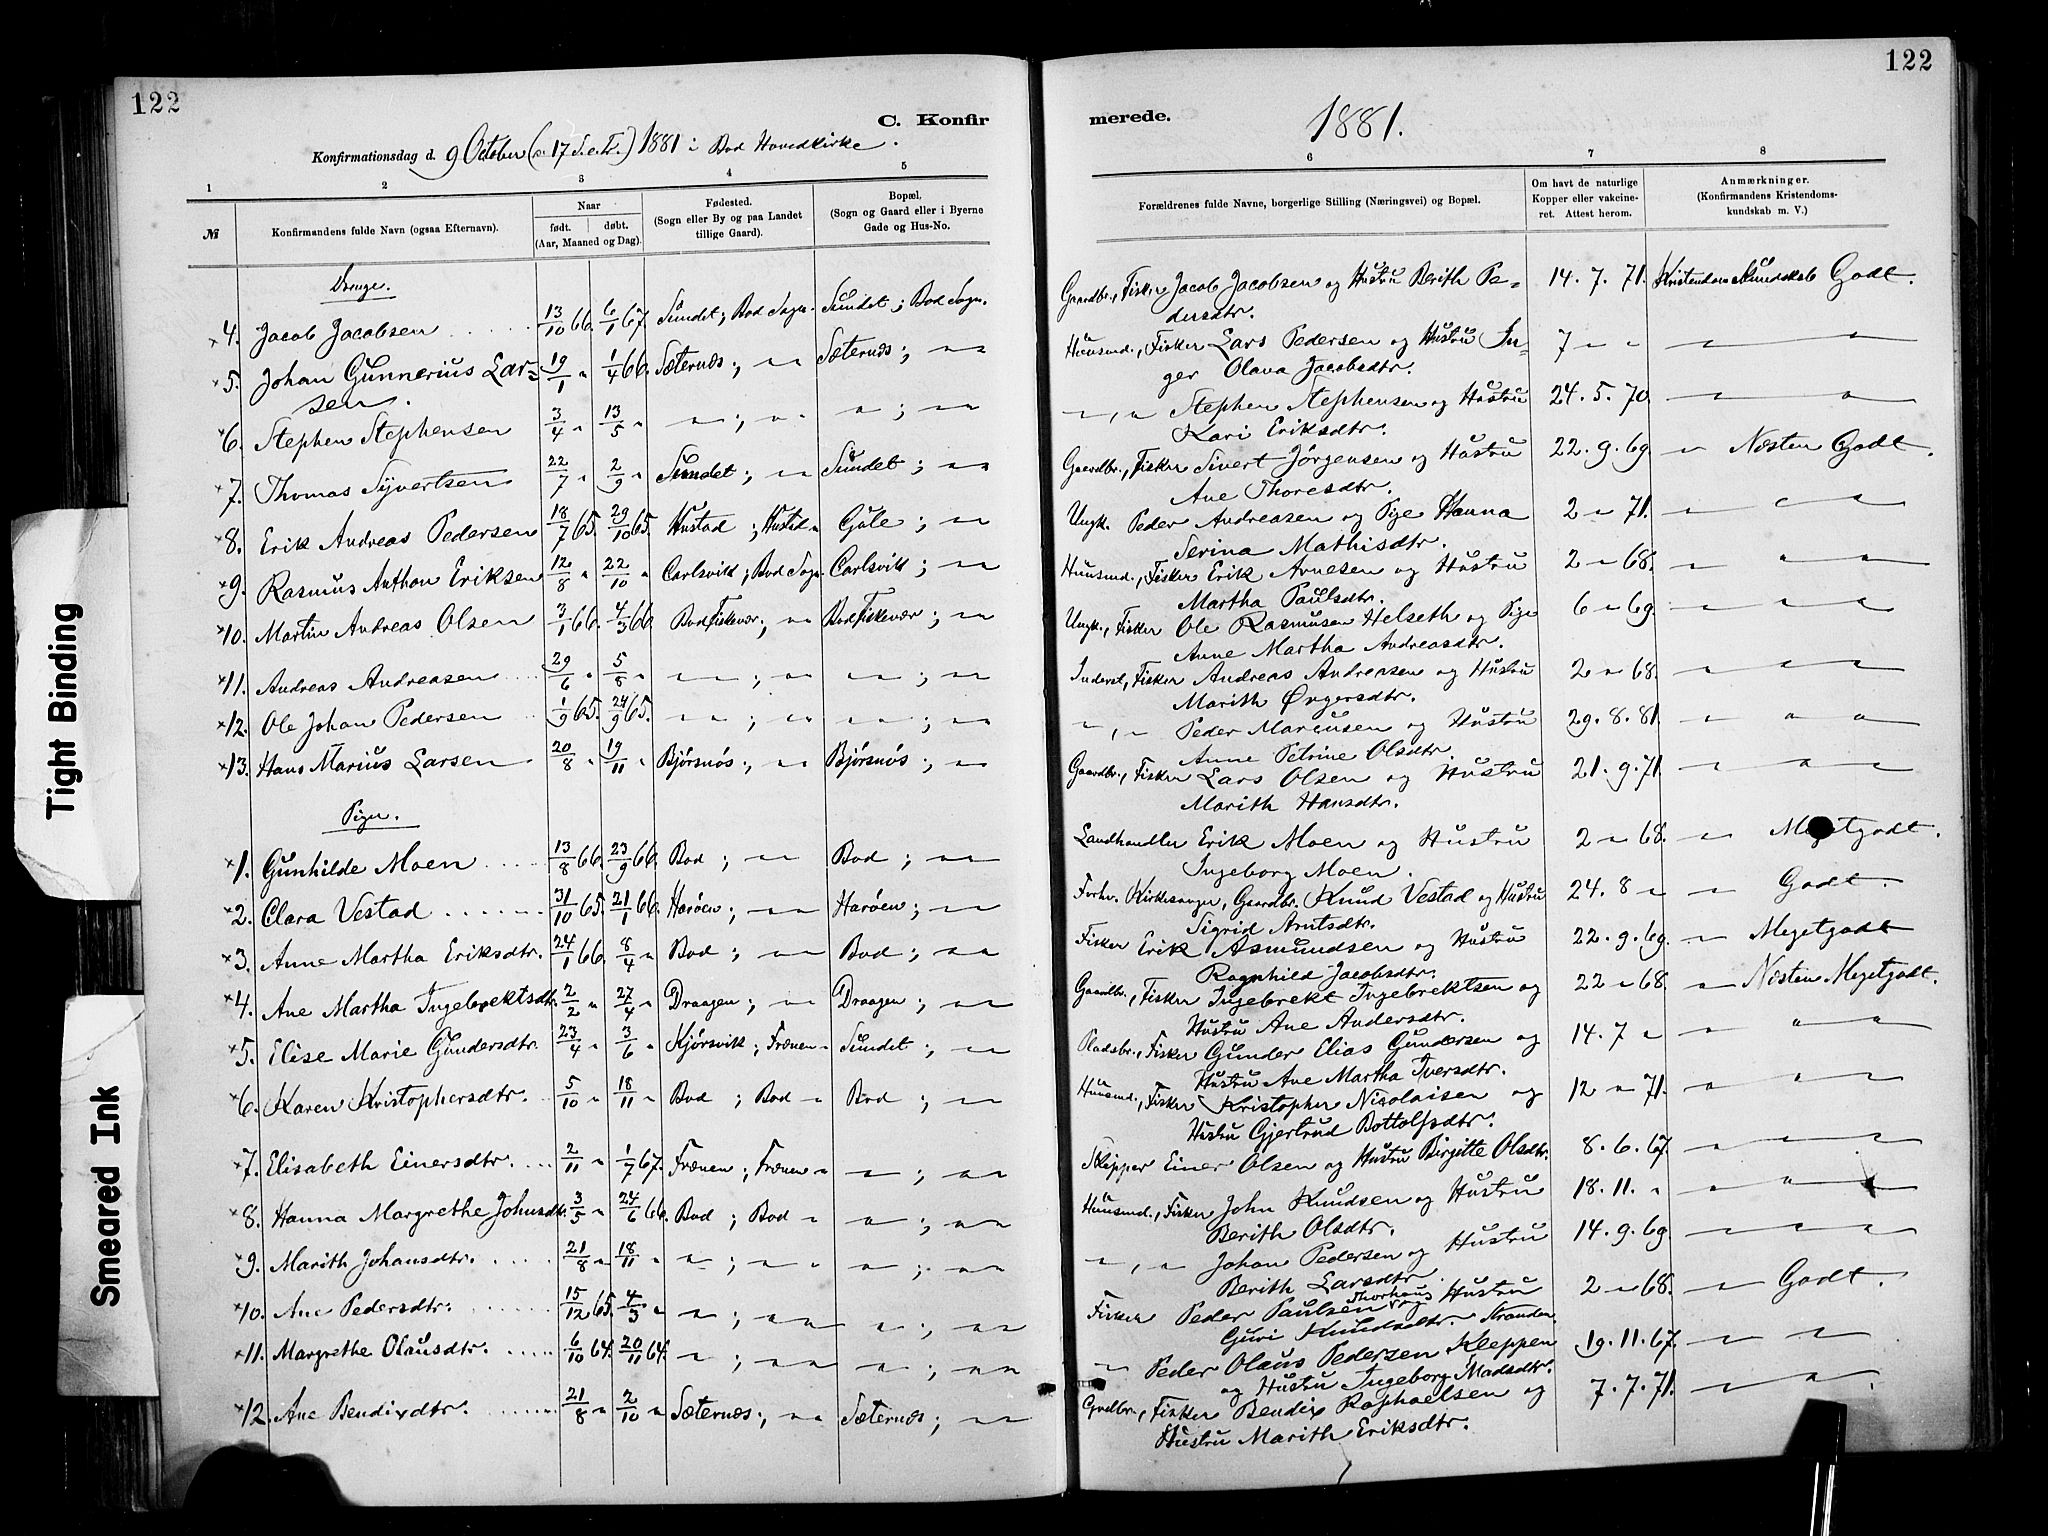 122
122
C. Konfir
merede.
1881.
Konfirmationsdag d. 9 October (s. 17 S. e. Tr.) 1881 i Bod Hovedkirke.
1 2 3 4 5
6 7 8
№ Konfirmandens fulde Navn (ogsaa Efternavn). Naar født. døbt. (Aar, Maaned og Dag). Fødested. (Sogn eller By og paa Landet tillige Gaard). Bopæl, (Sogn og Gaard eller i Byerne Gade og Hus-No.
Forældrenes fulde Navne, borgerlige Stilling (Næringsvei) og Bopæl. Om havt de naturlige Kopper eller vakcineret. Attest herom. Anmærkninger. (Konfirmandens Kristendomskundskab m. V.)
Drenge.
×4. Jacob Jacobsen 13/10 66. 6/1 67. Sundet; Bod Sogn. Sundet; Bod Sogn. Gaardbr., Fisker Jacob Jacobsen og Hustru Berith Pe-
dersdtr. 14. 7. 71. Kristendomskundskab Godt.
×5. Johan Gunnerius Lar-
sen. 19/1 " 1/4 66. Sæternæs; " " Sæternæs; " " Huusmd., Fisker Lars Pedersen og Hustru In-
ger Olava Jacobsdtr. 7 " " " "
×6. Stephen Stephensen 3/4 " 13/5 " " "; " " "; " " " , " Stephen Stephensen og Hustru
Kari Eriksdtr. 24. 5. 70. " "
×7. Thomas Syvertsen 22/7 " 2/9 " Sundet; " " Sundet; " " Gaardbr., Fisker Sivert Jörgensen og Hustru
Ane Thoresdtr. 22. 9. 69. " Næsten Godt.
×8. Erik Andreas Pedersen 18/7 65. 29/10 65. Hustad; Hustad " Gule; " " Ungk. Peder Andreasen og Pige Hanna
Serina Mathisdtr. 2 " 71. " " "
×9. Rasmus Anthon Eriksen 12/8 " 22/10 " Carlsvik; Bod Sogn. Carlsvik; " " Huusmd., Fisker Erik Arnesen og Hustru
Martha Paulsdtr. 2 " 68. " " "
×10. Martin Andreas Olsen 3/1 66. 4/3 66. Bod Fiskevær; " " Bod Fiskevær; " " Ungk., Fisker Ole Rasmusen Helseth og Pige
Anne Martha Andreasdtr. 6 " 69. " " "
×11. Andreas Andreasen 29/6 " 5/8 " " "; " " " "; " " Inderst, Fisker Andreas Andreasen og Hustru
Marith Øngersdtr. 2 " 68. " " "
×12. Ole Johan Pedersen 1/9 65. 24/9 65. " "; " " " "; " " " , " Peder Marcusen og Hustru
Anne Petrine Olsdtr. 29. 8. 81. " " "
×13. Hans Marius Larsen 20/8 " 19/11 " Bjørsnøs; " " Bjørsnøs; " " Gaardbr., Fisker Lars Olsen og Hustru
Marith Hansdtr. 21. 9. 71. " " "
Piger.
×1. Gunhilde Moen 13/8 66. 23/9 66. Bod; " " Bod; " " Landhandler Erik Moen og Hustru
Ingeborg Moen. 2 " 68. " Megetgodt.
×2. Clara Vestad 31/10 65. 21/1 66. Harøen; " " Harøen; " " Forhv. Kirkesanger, Gaardbr. Knud Vestad og Hustru
Sigrid Arntsdtr. 24. 8 " " Godt.
×3. Anne Martha Eriksdtr. 24/1 66. 8/4 " Bod; " " Bod; " " Fisker Erik Asmundsen og Hustru
Ragnhild Jacobsdtr. 22. 9. 69. " Megetgodt
×4. Ane Martha Ingebrektsdtr. 2/2 " 27/4 " Draagen; " " Draagen; " " Gaardbr., Fisker Ingebrekt Ingebrektsen og
Hustru Ane Andersdtr. 22 " 68. " Næsten Megetgodt.
×5. Elise Marie Gundersdtr. 23/4 " 3/6 " Kjørsvik; Frænen " Sundet; " " Pladsbr., Fisker Gunder Elias Gundersen og
Hustru Ane Martha Iversdtr. 14. 7 " " " "
×6. Karen Kristophersdtr. 5/10 " 18/11 " Bod; Bod " Bod; " " Huusmd., Fisker Kristopher Nicolaisen og
Hustru Gjertrud Bottolfsdtr. 12 " 71. " " "
×7. Elisabeth Einersdtr. 2/11 " 1/7 67. Frænen; Frænen " "; " " Skipper Einer Olsen og Hustru Birgitte Olsdtr. 8. 6. 67. " " "
×8. Hanna Margrethe Johnsdtr. 3/5 " 24/6 66. Bod; Bod " "; " " Huusmd., Fisker John Knudsen og Hustru
Berith Olsdtr. 18. 11. " " " "
×9. Marith Johansdtr. 21/8 " 18/11 " "; " " "; " " " , " Johan Pedersen og Hustru
Berith Larsdtr. 14. 9. 69. " " "
×10. Ane Pedersdtr. 15/12 65. 4/3 " "; " " "; " " Fisker Peder Paulsen Thorhaug og Hustru
Guri Knudsdtr. Stranden 2 " 68. " Godt.
×11. Margrethe Olausdtr. 6/10 64. 20/11 64. "; " " "; " " " Peder Olaus Pedersen Kleppen
og Hustru Ingeborg Madsdtr. 19. 11. 67. " "
×12. Ane Bendixdtr. 21/8 " 2/10 " Sæternæs; " " Sæternæs; " " Grdbr., Fisker Bendix Raphaelsen og
Hustru Marith Eriksdtr. 7. 7. 71. " "
Tight Binding
Smeared Ink